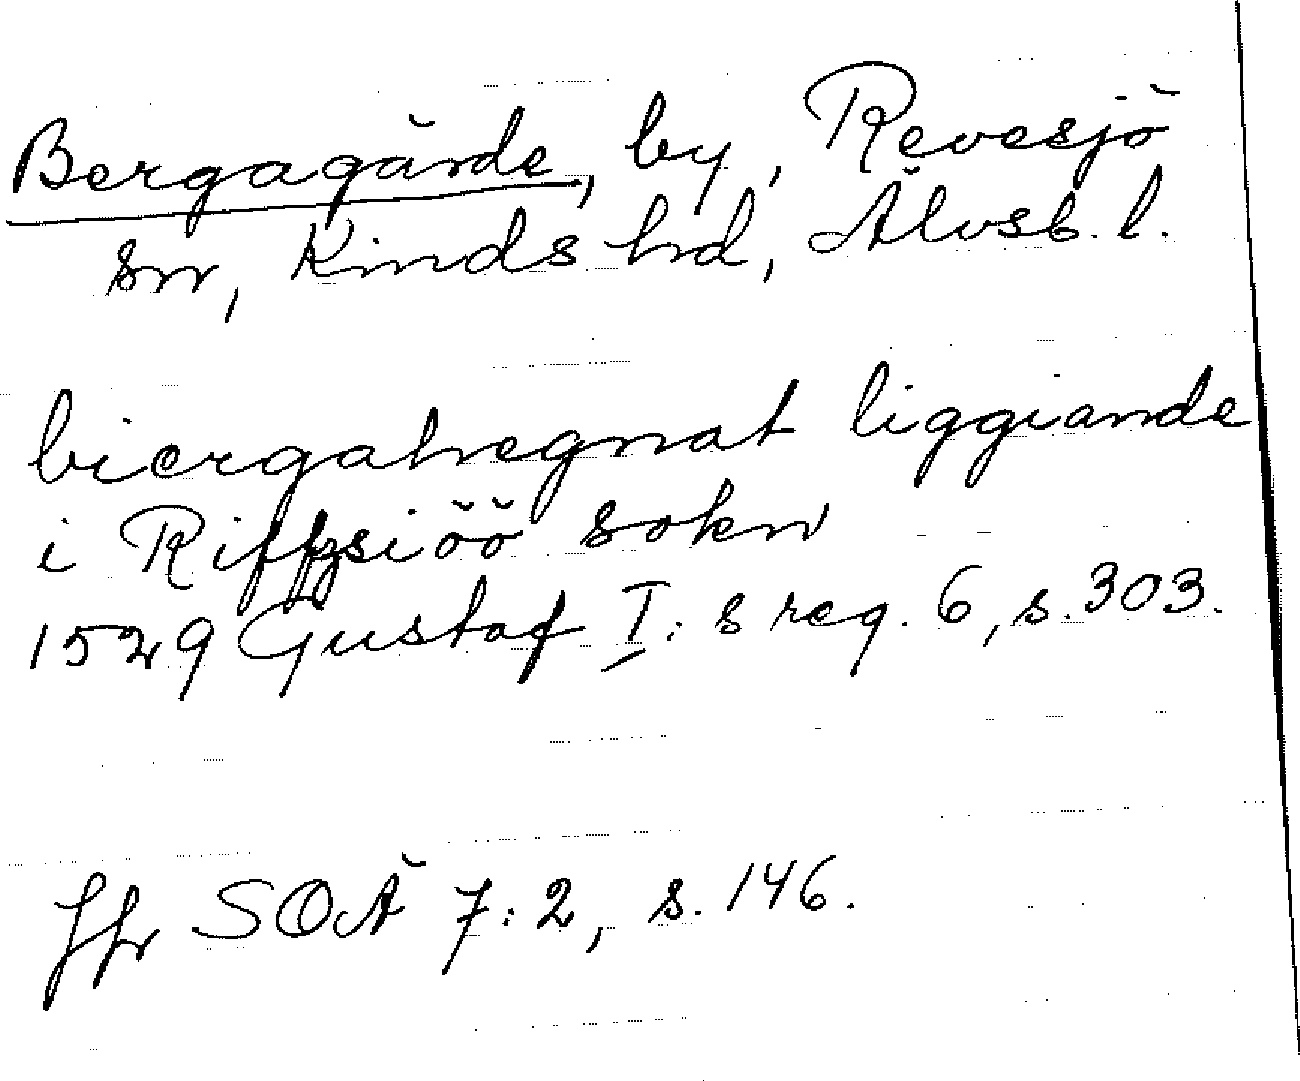 Bergagärde, by, Revesjö
sn, Kinds hd, Älvsb. l.
biergahegnat liggiande
i Riffzsiöö sokn
1529 Gustaf I:s reg. 6, s. 303.
Jfr SOÄ 7:2, s. 146.